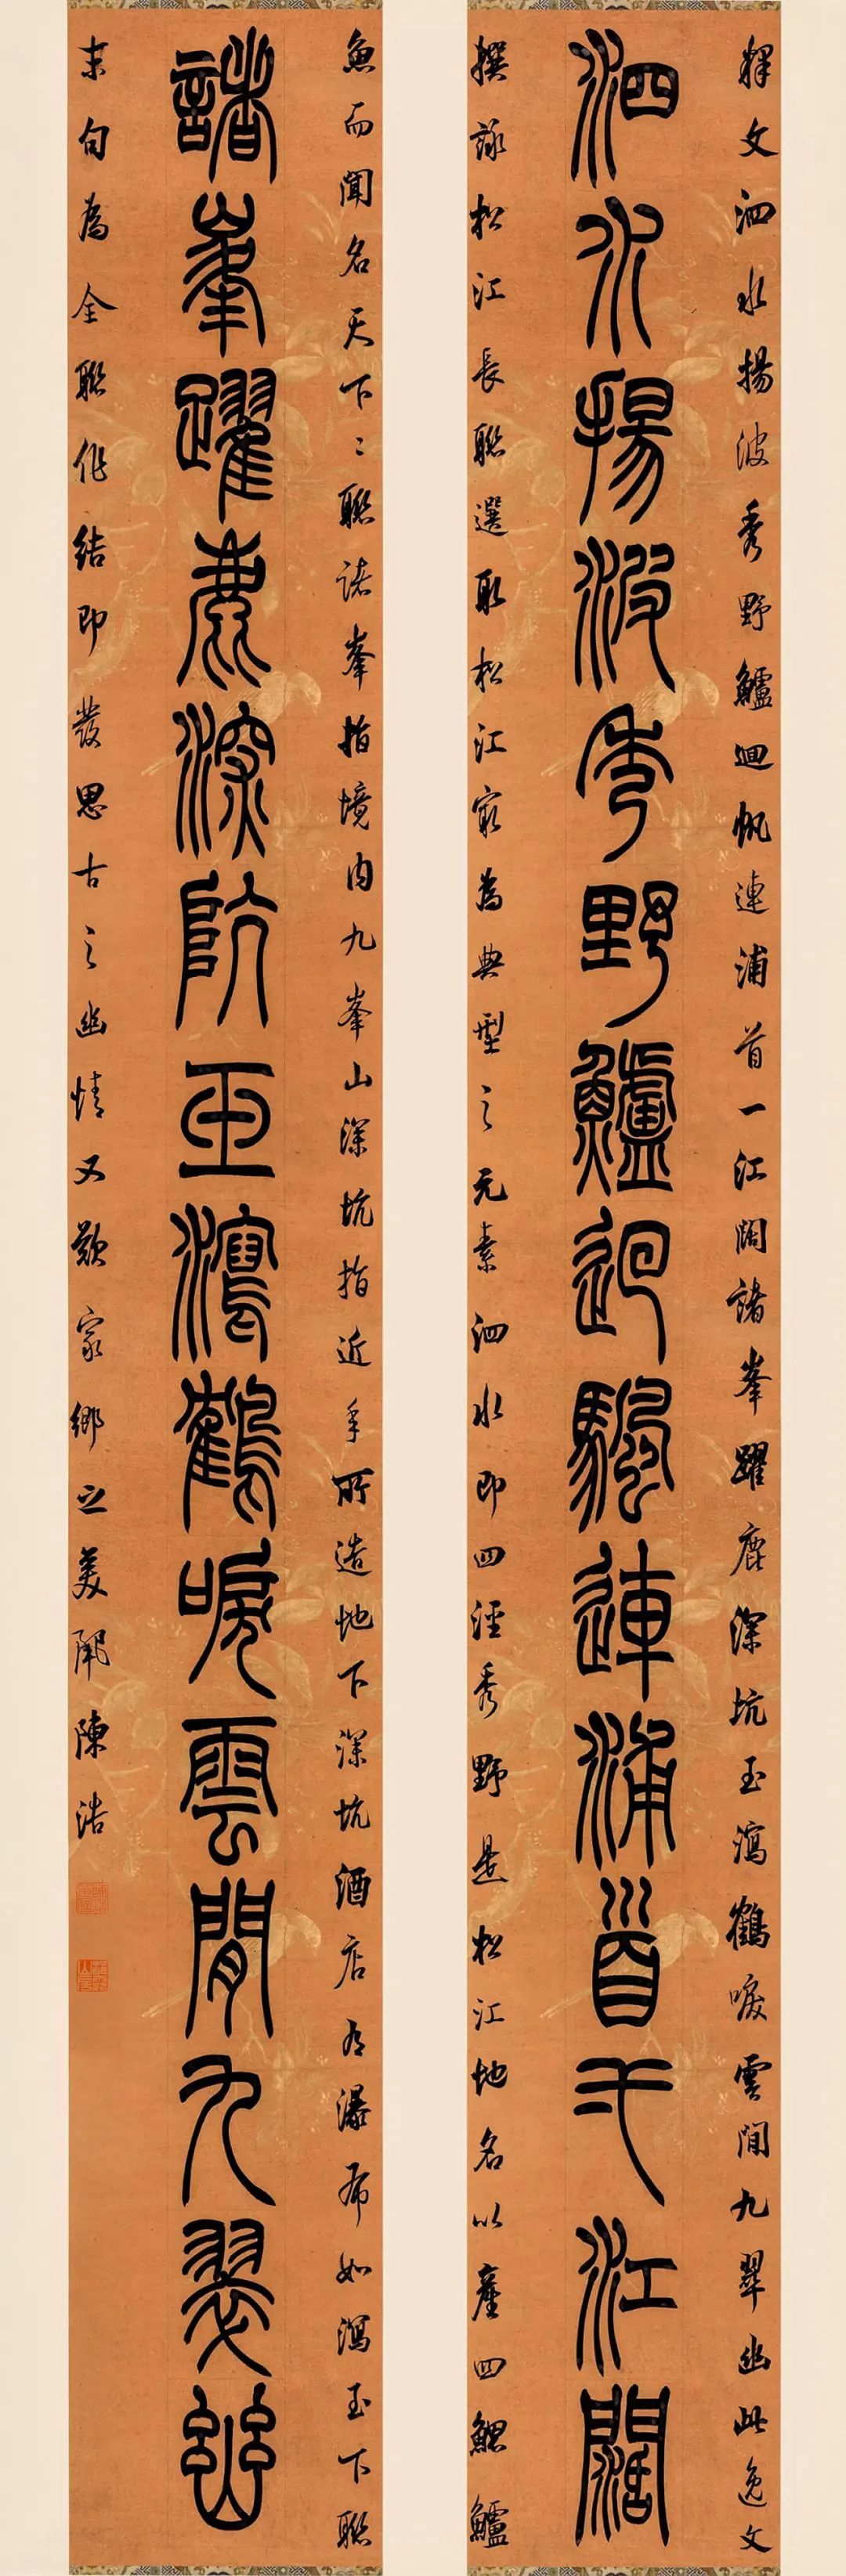 釋文泗水揚波秀野鱸迴帆連浦首一江闊諸峯躍鹿深坑玉瀉鶴唳雲間九翠幽此逸文
泗水揚波秀野鱸迴颿連浦首弌江闊
撰詠松江長聯選取松江最為典型之元素泗水即四涇秀野是松江地名以產四鰓鱸
魚而聞名天下〻聯諸峯指境內九峯山深坑指近年所造地下深坑酒店有瀑布如瀉玉下聯
諸峯躍鹿深阬玉瀉鶴唳雲閒九翠幽
末句為全聯作結即發思古之幽情又歎家鄉之美陳浩